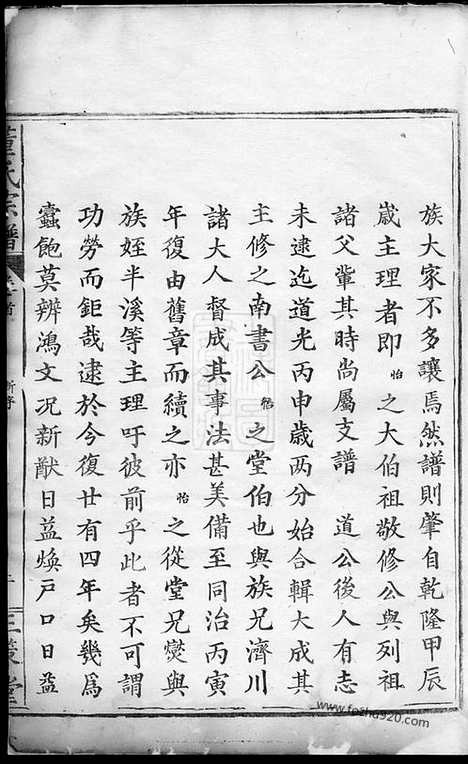 族大家不多讓焉然譜則肇自乾隆甲辰
歲主理者即怡之大伯祖敬修公與列祖
諸父輩其時尚屬支譜　道公後人有志
未逮迄道光丙申歲两分始合輯大成其
主修之南書公怡之堂伯也與族兄濟川
諸大人督成其事法甚美備至同治丙寅
年復由舊章而續之亦怡之從堂兄爕與
族姪半溪等主理吁彼前乎此者不可謂
功勞而鉅哉逮於今復廿有四年矣幾爲
蠹飽莫辨鴻文况新猷日益煥戸口日益
董氏宗譜
新序
三策堂
www.fozhu920.com